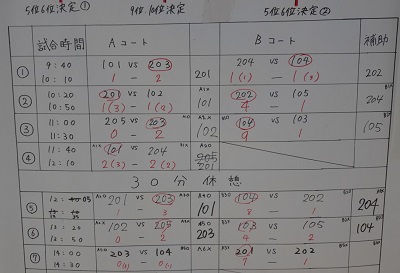 5位6位決定① 9位10位決定 5位6位決定②
試合時間 Aコート Bコート 補助
① 9:40 101 VS 203 204 VS 104
10:10 1 - 2 201 1(1) - 1(3) 202
② 10:20 201 VS 102 202 VS 105
10:50 1(3) - 1(2) 101 4 - 1 204
③ 11:00 205 VS 203 104 VS 103
11:30 0 - 2 102 9 1 105
④ 11:40 101 VS 204
12:10 2(3) - 2(2) 201
30分休憩
⑤ 201 VS 203 104 VS 202
1 - 3 101 1 204
⑥ 102 VS 205 103 VS 105
13:50 0 - 2 203 - 1 104
⑦ 14:00 203 VS 104 201 VS 202
14:30 101 - 2